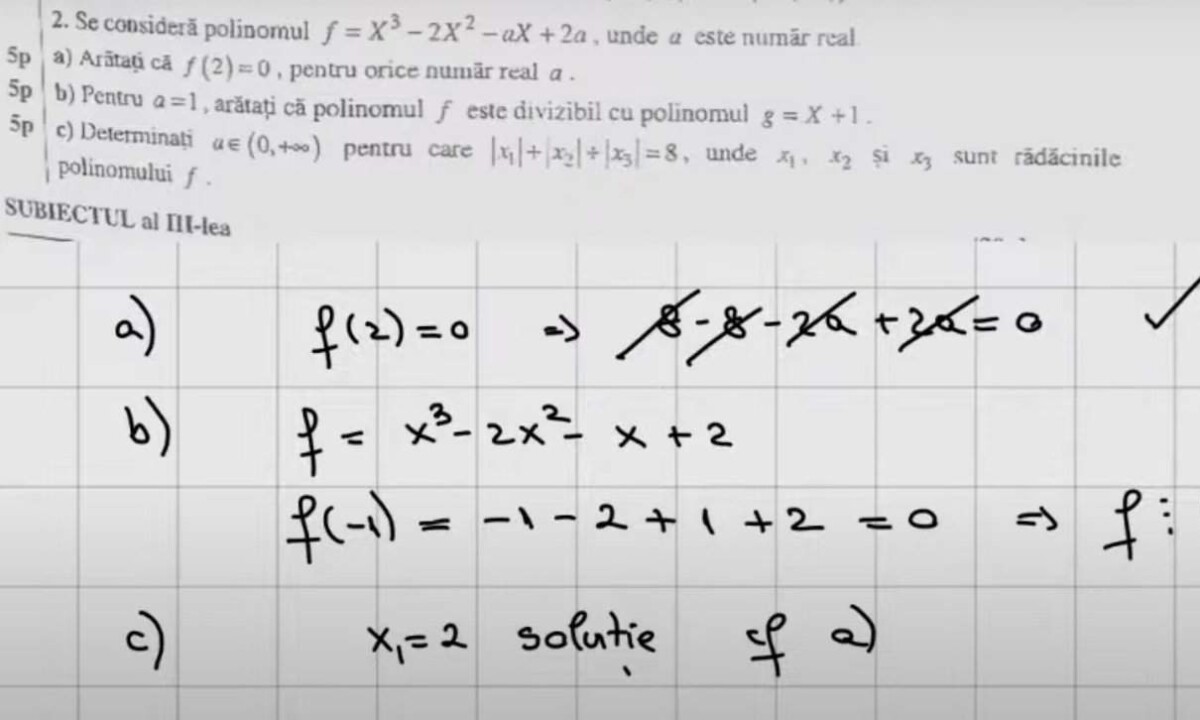 2. Se consideră polinomul f = X³ − 2X² − aX + 2a, unde a este număr real
5p a) Arătați că f(2)=0, pentru orice număr real a.
5p b) Pentru a=1, arătați că polinomul f este divizibil cu polinomul g = X+1.
5p c) Determinați a∈(0,+∞) pentru care |x₁|+|x₂|+|x₃|=8, unde x₁, x₂ și x₃ sunt rădăcinile
polinomului f.
SUBIECTUL al III-lea
a) f(2)=0 => 8-8-2a+2a=0 ✓
b) f = x³-2x²-x+2
f(-1) = -1-2+1+2=0 => f⋮
c) x₁=2 soluție cf a)